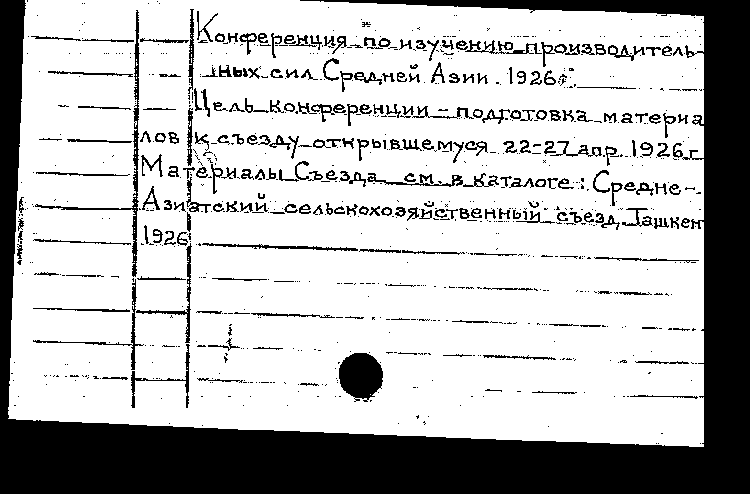 Конференция по изучению производитель-
ных сил Средней Азии. 1926г.
Цель конференции – подготовка материа
лов к съезду открывшемуся 22-27 апр. 1926 г
Материалы Съезда см. в каталоге: Средне-
Азиатский сельскохозяйственный съезд, Ташкен
1926